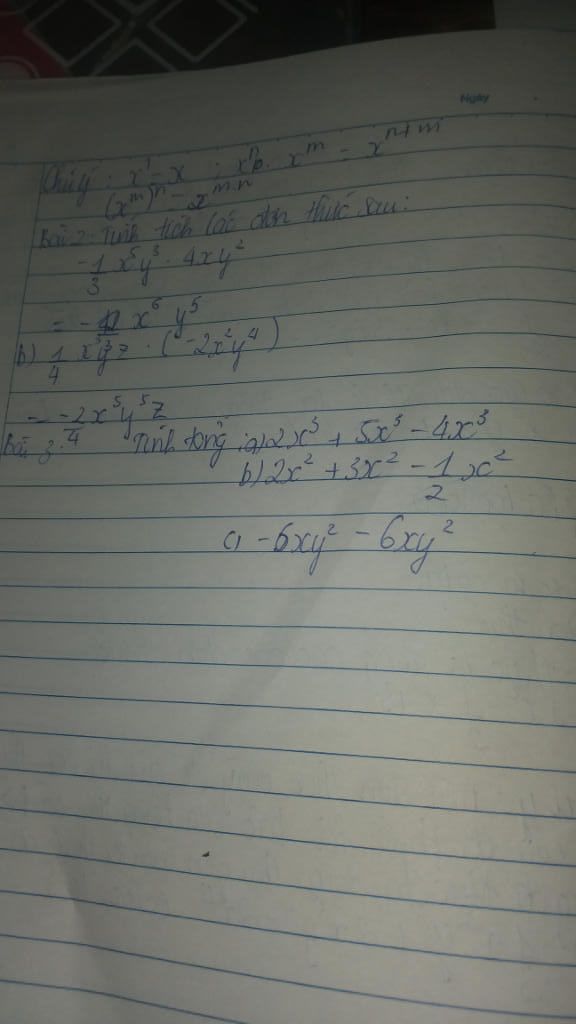 Ngày
Chú ý: x¹ = x ; xⁿ. xᵐ = xⁿ⁺ᵐ
(xᵐ)ⁿ = xᵐ·ⁿ
Bài 2: Tính tích các đơn thức sau:
-1/3 x⁵y³ · 4xy²
= - x⁶ y⁵
b) 1/4 x³y³z · (-2x²y⁴)
= -2/4 x⁵y⁵z
Bài 3. Tính tổng: a) 2x³ + 5x³ - 4x³
b) 2x² + 3x² - 1/2 x²
c) -6xy² - 6xy²